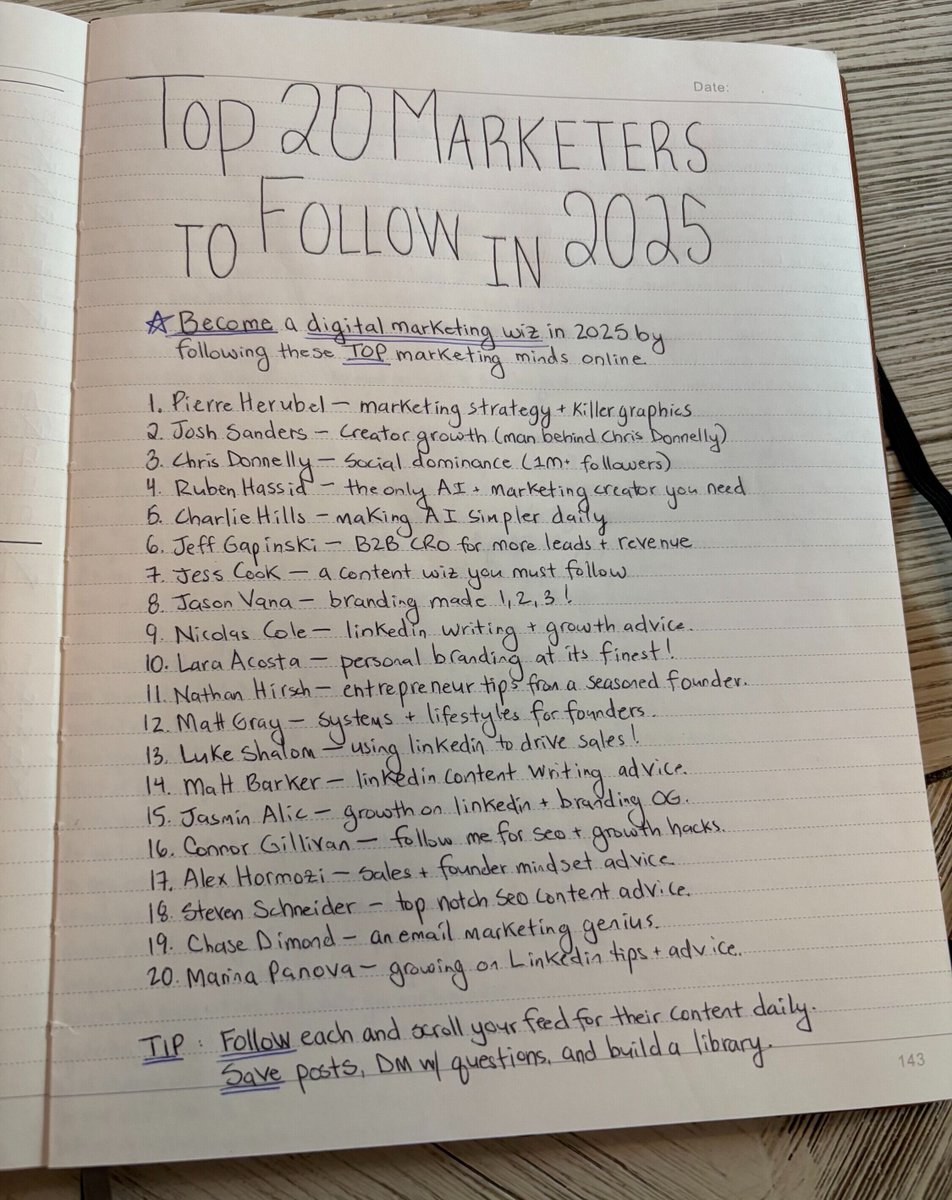 Date:
TOP 20 MARKETERS
TO FOLLOW IN 2025
☆ Become a digital marketing wiz in 2025 by
following these TOP marketing minds online.
1. Pierre Herubel – marketing strategy + killer graphics
2. Josh Sanders – Creator growth (man behind Chris Donnelly)
3. Chris Donnelly – Social dominance (1M+ followers)
4. Ruben Hassid – the only AI + marketing creator you need
5. Charlie Hills – making AI simpler daily
6. Jeff Gapinski – B2B CRO for more leads + revenue
7. Jess Cook – a content wiz you must follow
8. Jason Vana – branding made 1, 2, 3!
9. Nicolas Cole – linkedin writing + growth advice.
10. Lara Acosta – personal branding at its finest!
11. Nathan Hirsch – entrepreneur tips from a seasoned founder.
12. Matt Gray – systems + lifestyles for founders.
13. Luke Shalom – using linkedin to drive sales!
14. Matt Barker – linkedin content writing advice.
15. Jasmin Alic – growth on linkedin + branding OG.
16. Connor Gillivan – follow me for seo + growth hacks.
17. Alex Hormozi – sales + founder mindset advice
18. Steven Schneider – top notch seo content advice.
19. Chase Dimond – an email marketing genius.
20. Marina Panova – growing on Linkedin tips + advice.
TIP: Follow each and scroll your feed for their content daily.
Save posts, DM w/ questions, and build a library.
143